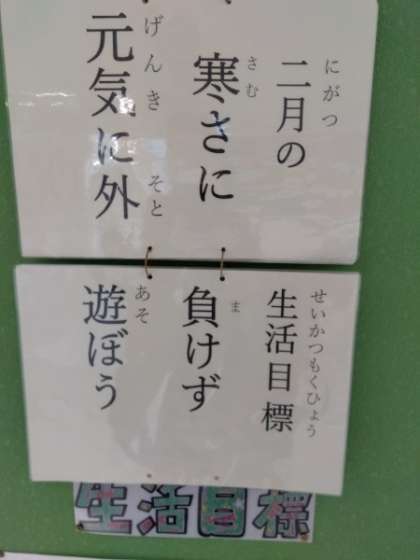 にがつ せいかつもくひょう
二月の生活目標
さむ ま
寒さに負けず
げんき そと あそ
元気に外遊ぼう
生活目標